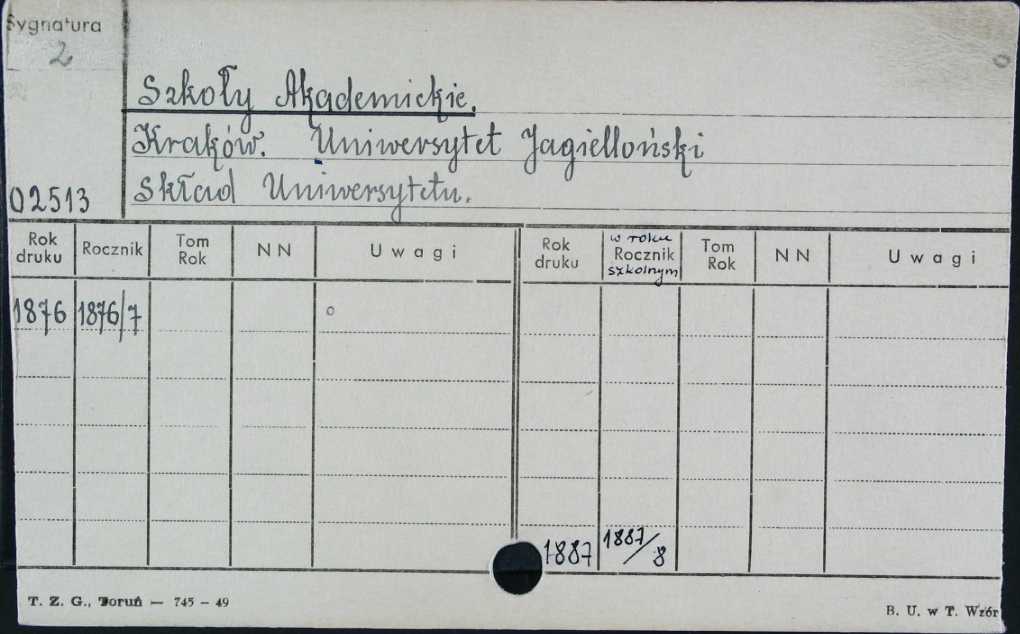 Sygnatura
2
Szkoły Akademickie.
Kraków. Uniwersytet Jagielloński
02513 Skład Uniwersytetu.
Rok druku Rocznik Tom Rok NN Uwagi Rok druku w roku Rocznik szkolnym Tom Rok NN Uwagi
1876 1876/7
1887 1887/8
T. Z. G., Toruń — 745 - 49 B. U. w T. Wzór